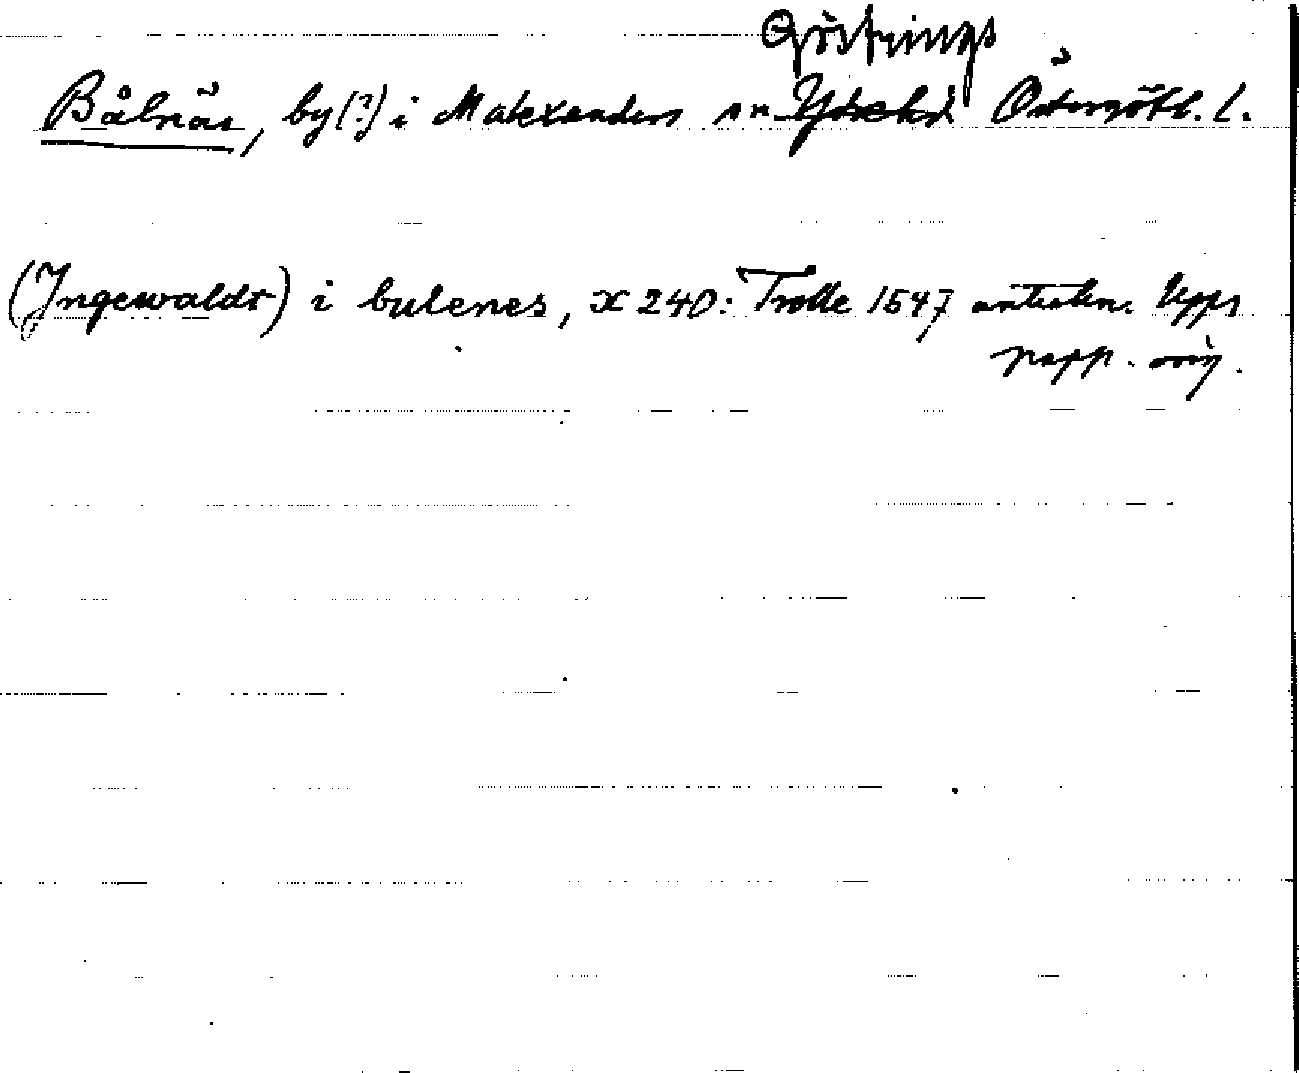 Göstrings
Bålnäs, by(?) i Malexanders sn Ydre hd Östergötl. l.
(Ingewaldt) i bulenes, x 240: Trolle 1547 anteckn. Upps
papp. orig.